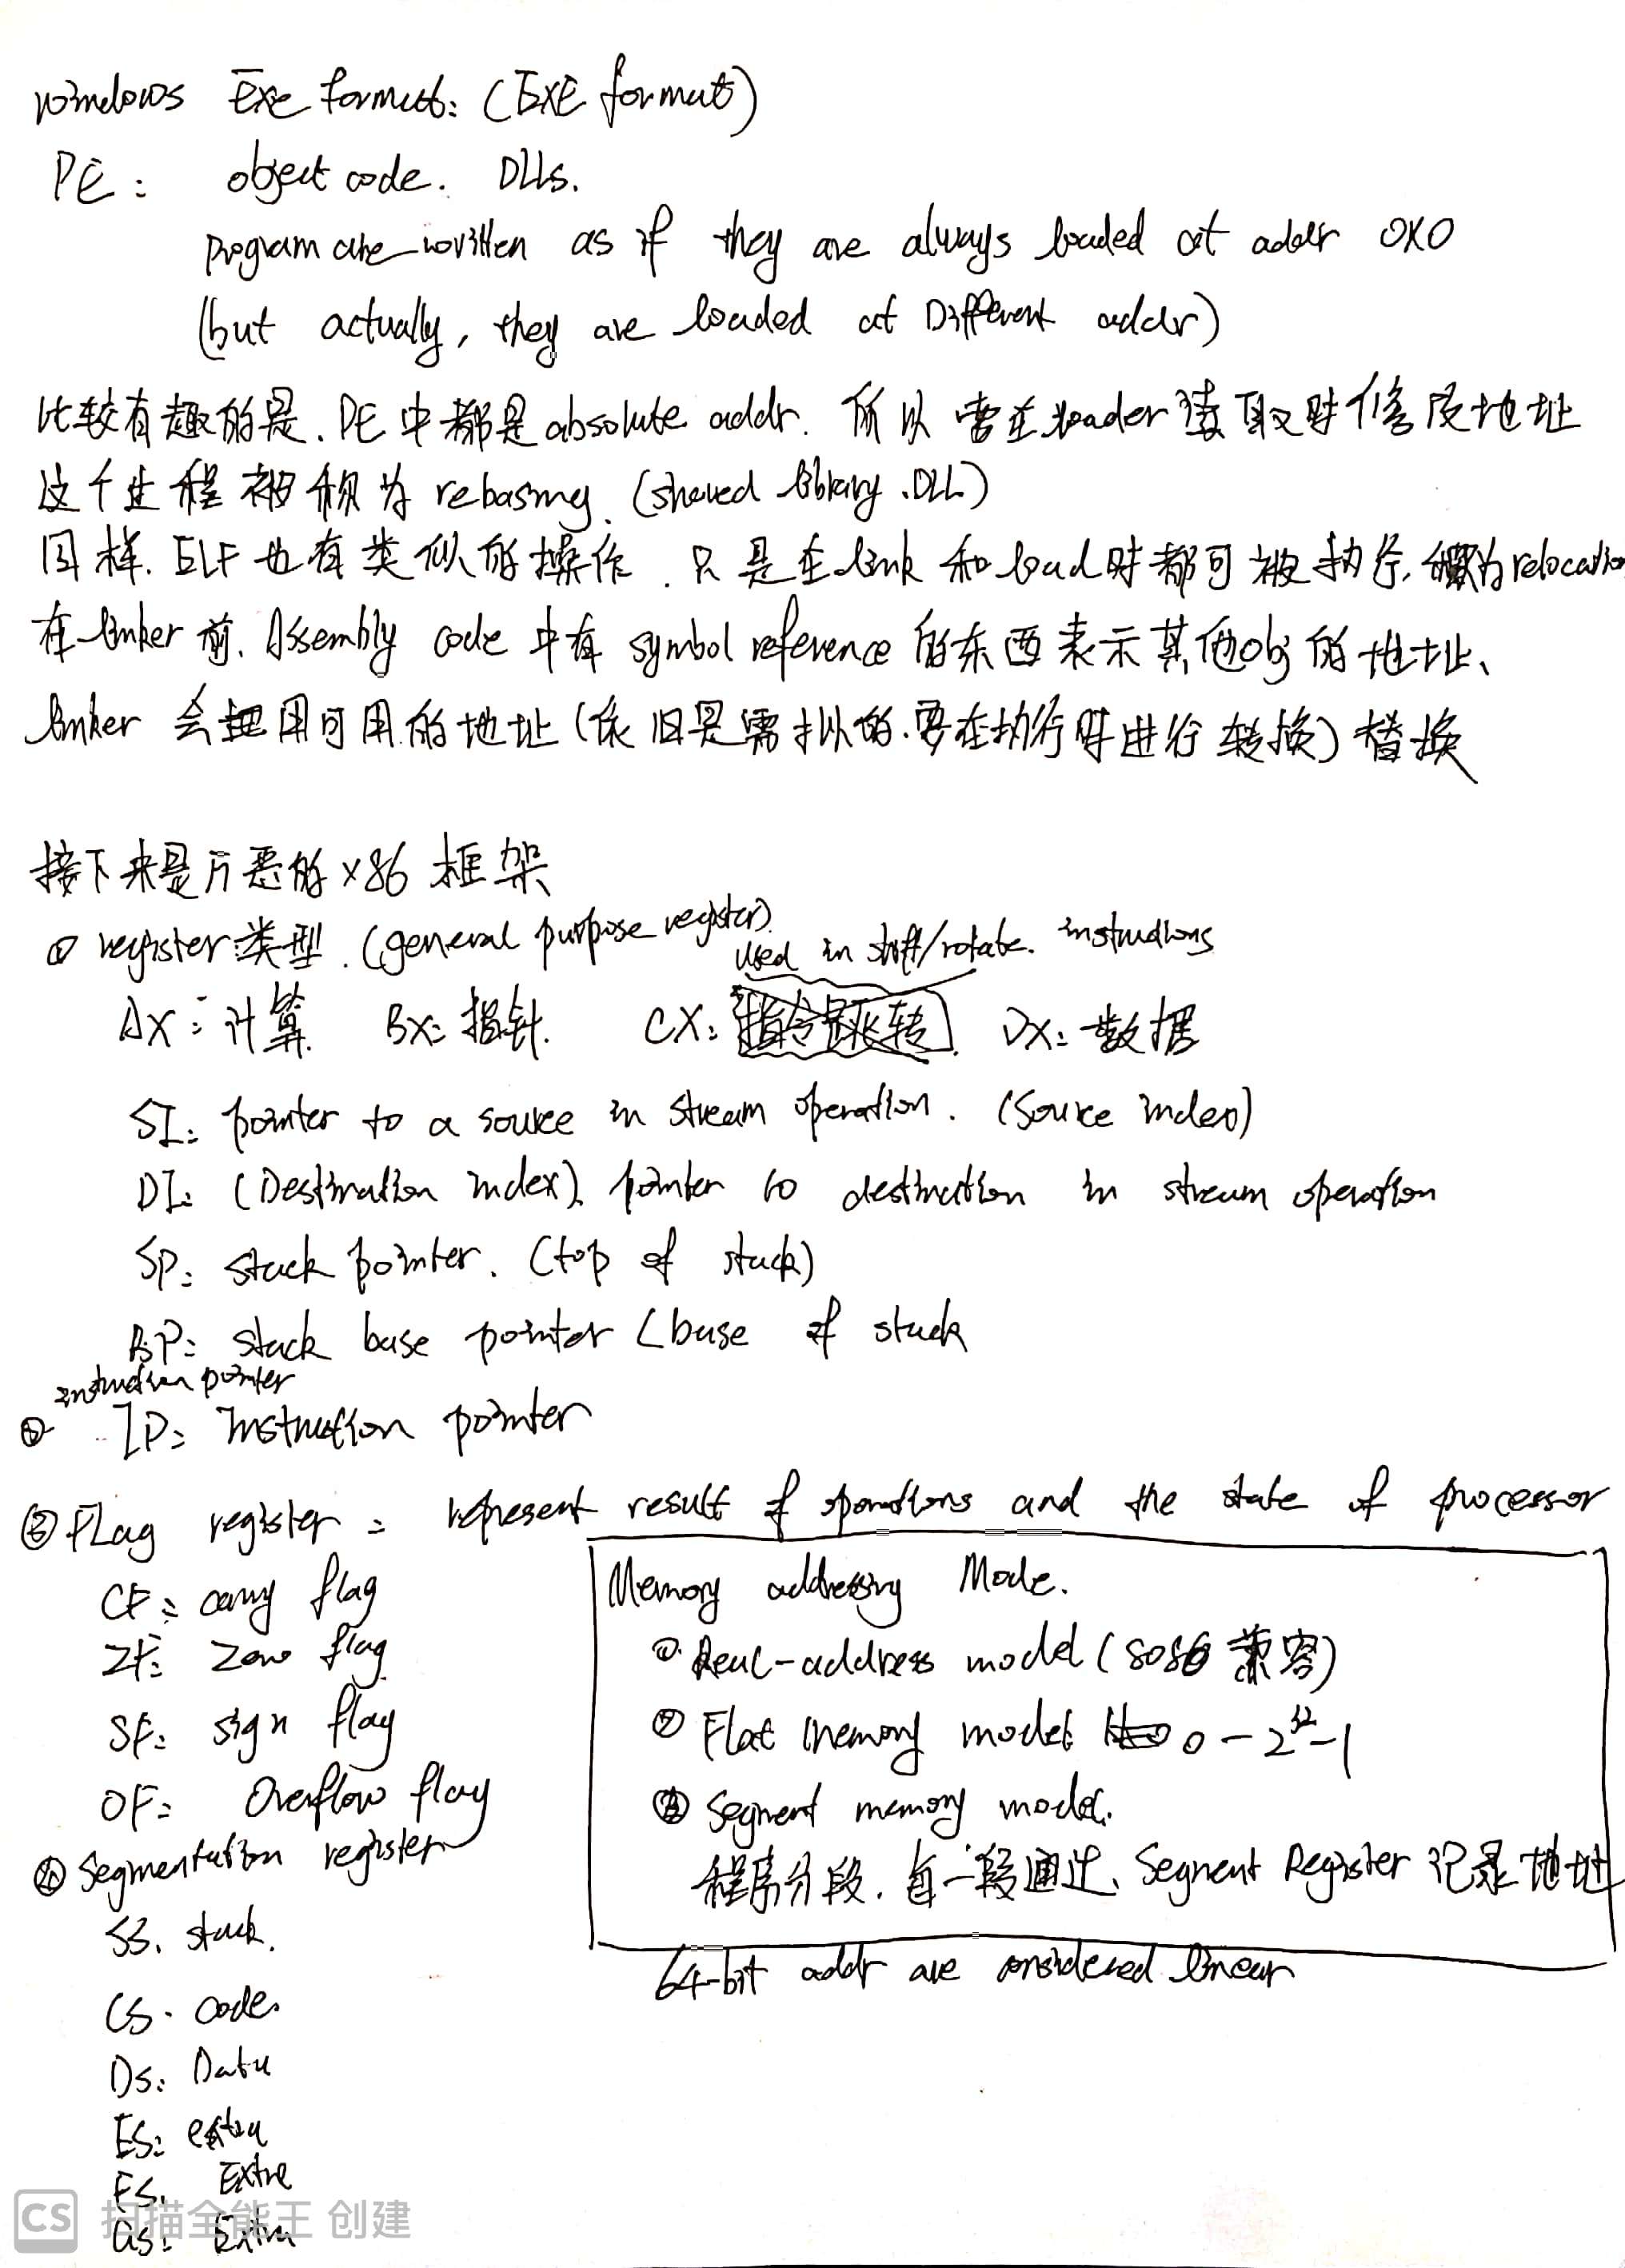 Windows Exe format: (EXE format)
PE: object code. DLLs.
program are written as if they are always loaded at addr 0X0
(but actually, they are loaded at Different addr)
比较有趣的是. PE中都是absolute addr. 所以 需在loader读取时修改地址
这个过程被称为rebasing. (shared library .DLL)
同样. ELF也有类似的操作. 只是在link和load时都可被执行, 称为relocation
在linker前. Assembly code 中有 symbol reference 的东西表示其他obj的地址、
linker 会 用可用的地址(依旧是虚拟的.要在执行时进行转换)替换
接下来是万恶的x86 框架
① register类型. (general purpose register).
used in shift/rotate. instructions
AX: 计算. BX: 指针. CX: 指令跳转. DX: 数据
SI: pointer to a source in stream operation. (Source index)
DI: (Destination index). pointer to destination in stream operation
SP: stack pointer. (top of stack)
BP: stack base pointer (base of stack
instruction pointer
② IP: Instruction pointer
③ FLag register: represent result of operations and the state of processor
CF: carry flag
ZF: Zero flag
SF: sign flag
OF: Overflow flag
④ Segmentation register
SS. stack.
CS. code.
DS: Data
ES: extra
FS. Extra
GS: Extra
Memory addressing Mode.
①. Real-address model (8086 兼容)
② Flat memory model 0 - 2^32-1
③ Segment memory model.
程序分段. 每一段通过、Segment Register 记录地址
64-bit addr are considered linear
CS 扫描全能王 创建